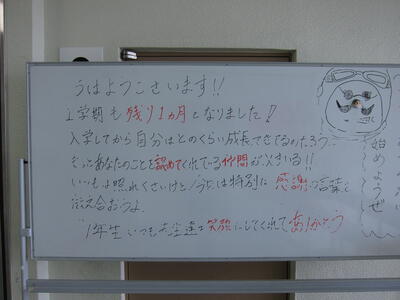 おはようございます!!
1学期も残り1ヵ月となりました!
入学してから自分はどのくらい成長できてるのだろう?
きっとあなたのことを認めてくれている仲間がいます!!
いつもは照れくさいけど、今日は特別に感謝の言葉を
伝え合おうよ
1年生いつも先生達を笑顔にしてくれてありがとう
始めようぜ